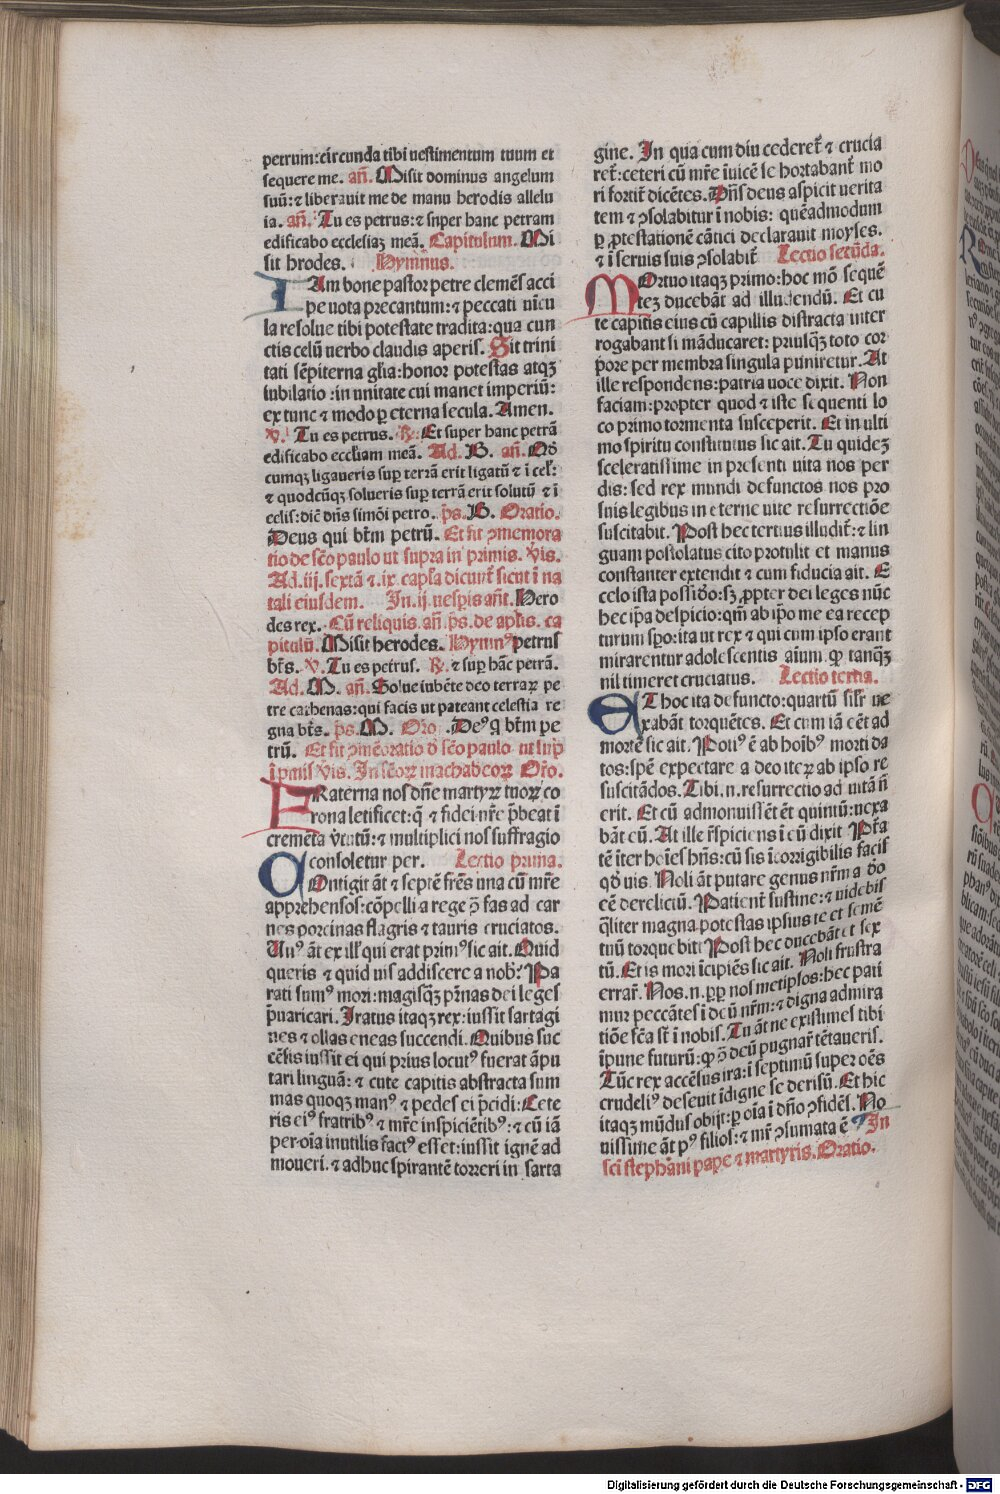 petrum:circunda tibi uestimentum tuum et
sequere me. añ. Misit dominus angelum
suū:⁊ liberauit me de manu herodis allelu
ia. añ. Tu es petrus:⁊ super hanc petram
edificabo ecclesiaʒ meā. Capitulum. Mi
sit hrodes. Hymnus.
IAm bone pastor petre clemēs acci
pe uota precantum:⁊ peccati uīcu
la resolue tibi potestate tradita:qua cun
ctis celū uerbo claudis aperis. Sit trini
tati sēpiterna glīa:honor potestas atqʒ
iubilatio :in unitate cui manet imperiū:
ex tunc ⁊ modo ꝑ eterna secula. Amen.
℣. Tu es petrus. ℞. Et super hanc petrā
edificabo eccliam meā. Ad. B. añ. Qd̄
cumqʒ ligaueris suꝑ terrā erit ligatū ⁊ ī cel̄:
⁊ quodcūqʒ solueris suꝑ terrā erit solutū ⁊ ī
celis:dic̄ dn̄s simōi petro. p̄s. B. Oratio.
Deus qui btm̄ petrū. Et fit ꝯmemora
tio de sc̄o paulo ut supra in primis. v̄is.
Ad.iij.sextā ⁊.ix.capl̄a dicunt̄ sicut ī na
tali eiusdem. In.ij.uesꝑis añt. Hero
des rex. Cū reliquis.añ.p̄s.de apl̄is.ca
pitulū. Misit herodes. Hymnꝰ petrus
bt̄s. ℣. Tu es petrus. ℞. ⁊ suꝑ hāc petrā.
Ad. M. añ. Solue iubēte deo terraꝝ pe
tre cathenas:qui facis ut pateant celestia re
gna bt̄s. p̄s. M. Oro̅. Deꝰ q̄ btm̄ pe
trū. Et fit ꝯmēoratio d̄ sc̄o paulo ut suꝑ
ī pmis v̄is. In sc̄oꝝ machabeoꝝ Or̄o.
FRaterna nos dn̄e martyꝝ tuoꝝ co
rona letificet:q̄ ⁊ fidei nr̄e p̄beat ī
cremēta v̄tutū:⁊ multiplici nos suffragio
consoletur per. Lectio prima.
COntigit āt ⁊ septē fr̄es una cū mr̄e
apprehensos:cōpelli a rege ꝯ̄ fas ad car
nes porcinas flagris ⁊ tauris cruciatos.
Unꝰ āt ex ill̄ qui erat primꝰ sic ait. Quid
queris ⁊ quid uis addiscere a nob̄? Pa
rati sumꝰ mori:magisqʒ pr̄nas dei leges
p̄uaricari. Iratus itaqʒ rex:iussit sartagi
nes ⁊ ollas eneas succendi. Quibus suc
cēsis iussit ei qui prius locutꝰ fuerat āpu
tari linguā:⁊ cute capitis abstracta sum
mas quoqʒ manꝰ ⁊ pedes ei p̄cidi:Cete
ris eiꝰ fratribꝰ ⁊ mr̄e inspiciētibꝰ:⁊ cū iā
per oīa inutilis factꝰ esset:iussit ignē ad
moueri.⁊ adhuc spirantē torreri in sarta
gine. In qua cum diu cederet̄ ⁊ crucia
ret̄:ceteri cū mr̄e īuicē se hortabant̄ mo
ri fortit̄ dicētes. Dn̄s deus aspicit uerita
tem ⁊ ꝯsolabitur ī nobis: quēadmodum
ꝑ ꝓtestationē cātici declarauit moyses.
⁊ ī seruis suis ꝯsolabit̄ Lectio secūda.
MOrtuo itaqʒ primo:hoc mō sequē
teʒ ducebāt ad illudendū. Et cu
te capitis eius cū capillis distracta inter
rogabant si māducaret: priusqʒ toto cor
pore per membra singula puniretur. At
ille respondens:patria uoce dixit. Non
faciam:propter quod ⁊ iste sequenti lo
co primo tormenta susceperit. Et in ulti
mo spiritu constitutus sic ait. Tu quideʒ
sceleratissime in presenti uita nos per
dis:sed rex mundi defunctos nos pro
suis legibus in eterne uite resurrectiōe
suscitabit. Post hec tertius illudit̄:⁊ lin
guam postolatus cito protulit et manus
constanter extendit ⁊ cum fiducia ait. E
celo ista possid̄o:sʒ ꝓpter dei leges nūc
hec ip̄a despicio:qm̄ ab ip̄o me ea recep
turum sp̄o:ita ut rex ⁊ qui cum ipso erant
mirarentur adolescentis aīum ꝙ tanqʒ
nil timeret cruciatus. Lectio tertia.
ET hoc ita defuncto:quartū sil̄r ue
xabāt torquētes. Et cum iā eēt ad
mortē sic ait. Potiꝰ ē ab hoībꝰ morti da
tos:spē expectare a deo iteꝝ ab ipso re
suscitādos. Tibi.n.resurrectio ad uitā n̄
erit. Et cū admouissēt ēt quintū:uexa
bāt eū. At ille r̄spiciens ī eū dixit Pt̄a
tē īter hoīes hn̄s:cū sis īcorrigibilis facis
qd̄ uis. Noli āt putare genus nr̄m a d̄o
eē derelictū. Patient̄ sustine:⁊ uidebis
q̄liter magna potestas ipsius te et semē
tuū torquebit. Post hec ducebāt et sex
tū. Et is mori īcipiēs sic ait. Noli frustra
errar̄. Nos.n.ꝑꝑ nosmetipsos:hec pati
mur peccātes ī deū nr̄m:⁊ digna admira
tiōe fc̄a st̄ ī nobis. Tu āt ne existimes tibi
īpune futurū:ꝙ ꝯ̄ deū pugnar̄ tētaueris.
Tūc rex accēsus ira:ī septimū super oēs
crudeliꝰ deseuit īdigne se derisū. Et hic
itaqʒ mūdus obijt:ꝑ oīa ī dn̄o ꝯfidēs. No
uissime āt pꝰ filios:⁊ mr̄ ꝯsumata ē ¶ In
sc̄i stephani pape ⁊ martyris. Oratio.
Digitalisierung gefördert durch die Deutsche Forschungsgemeinschaft - DFG